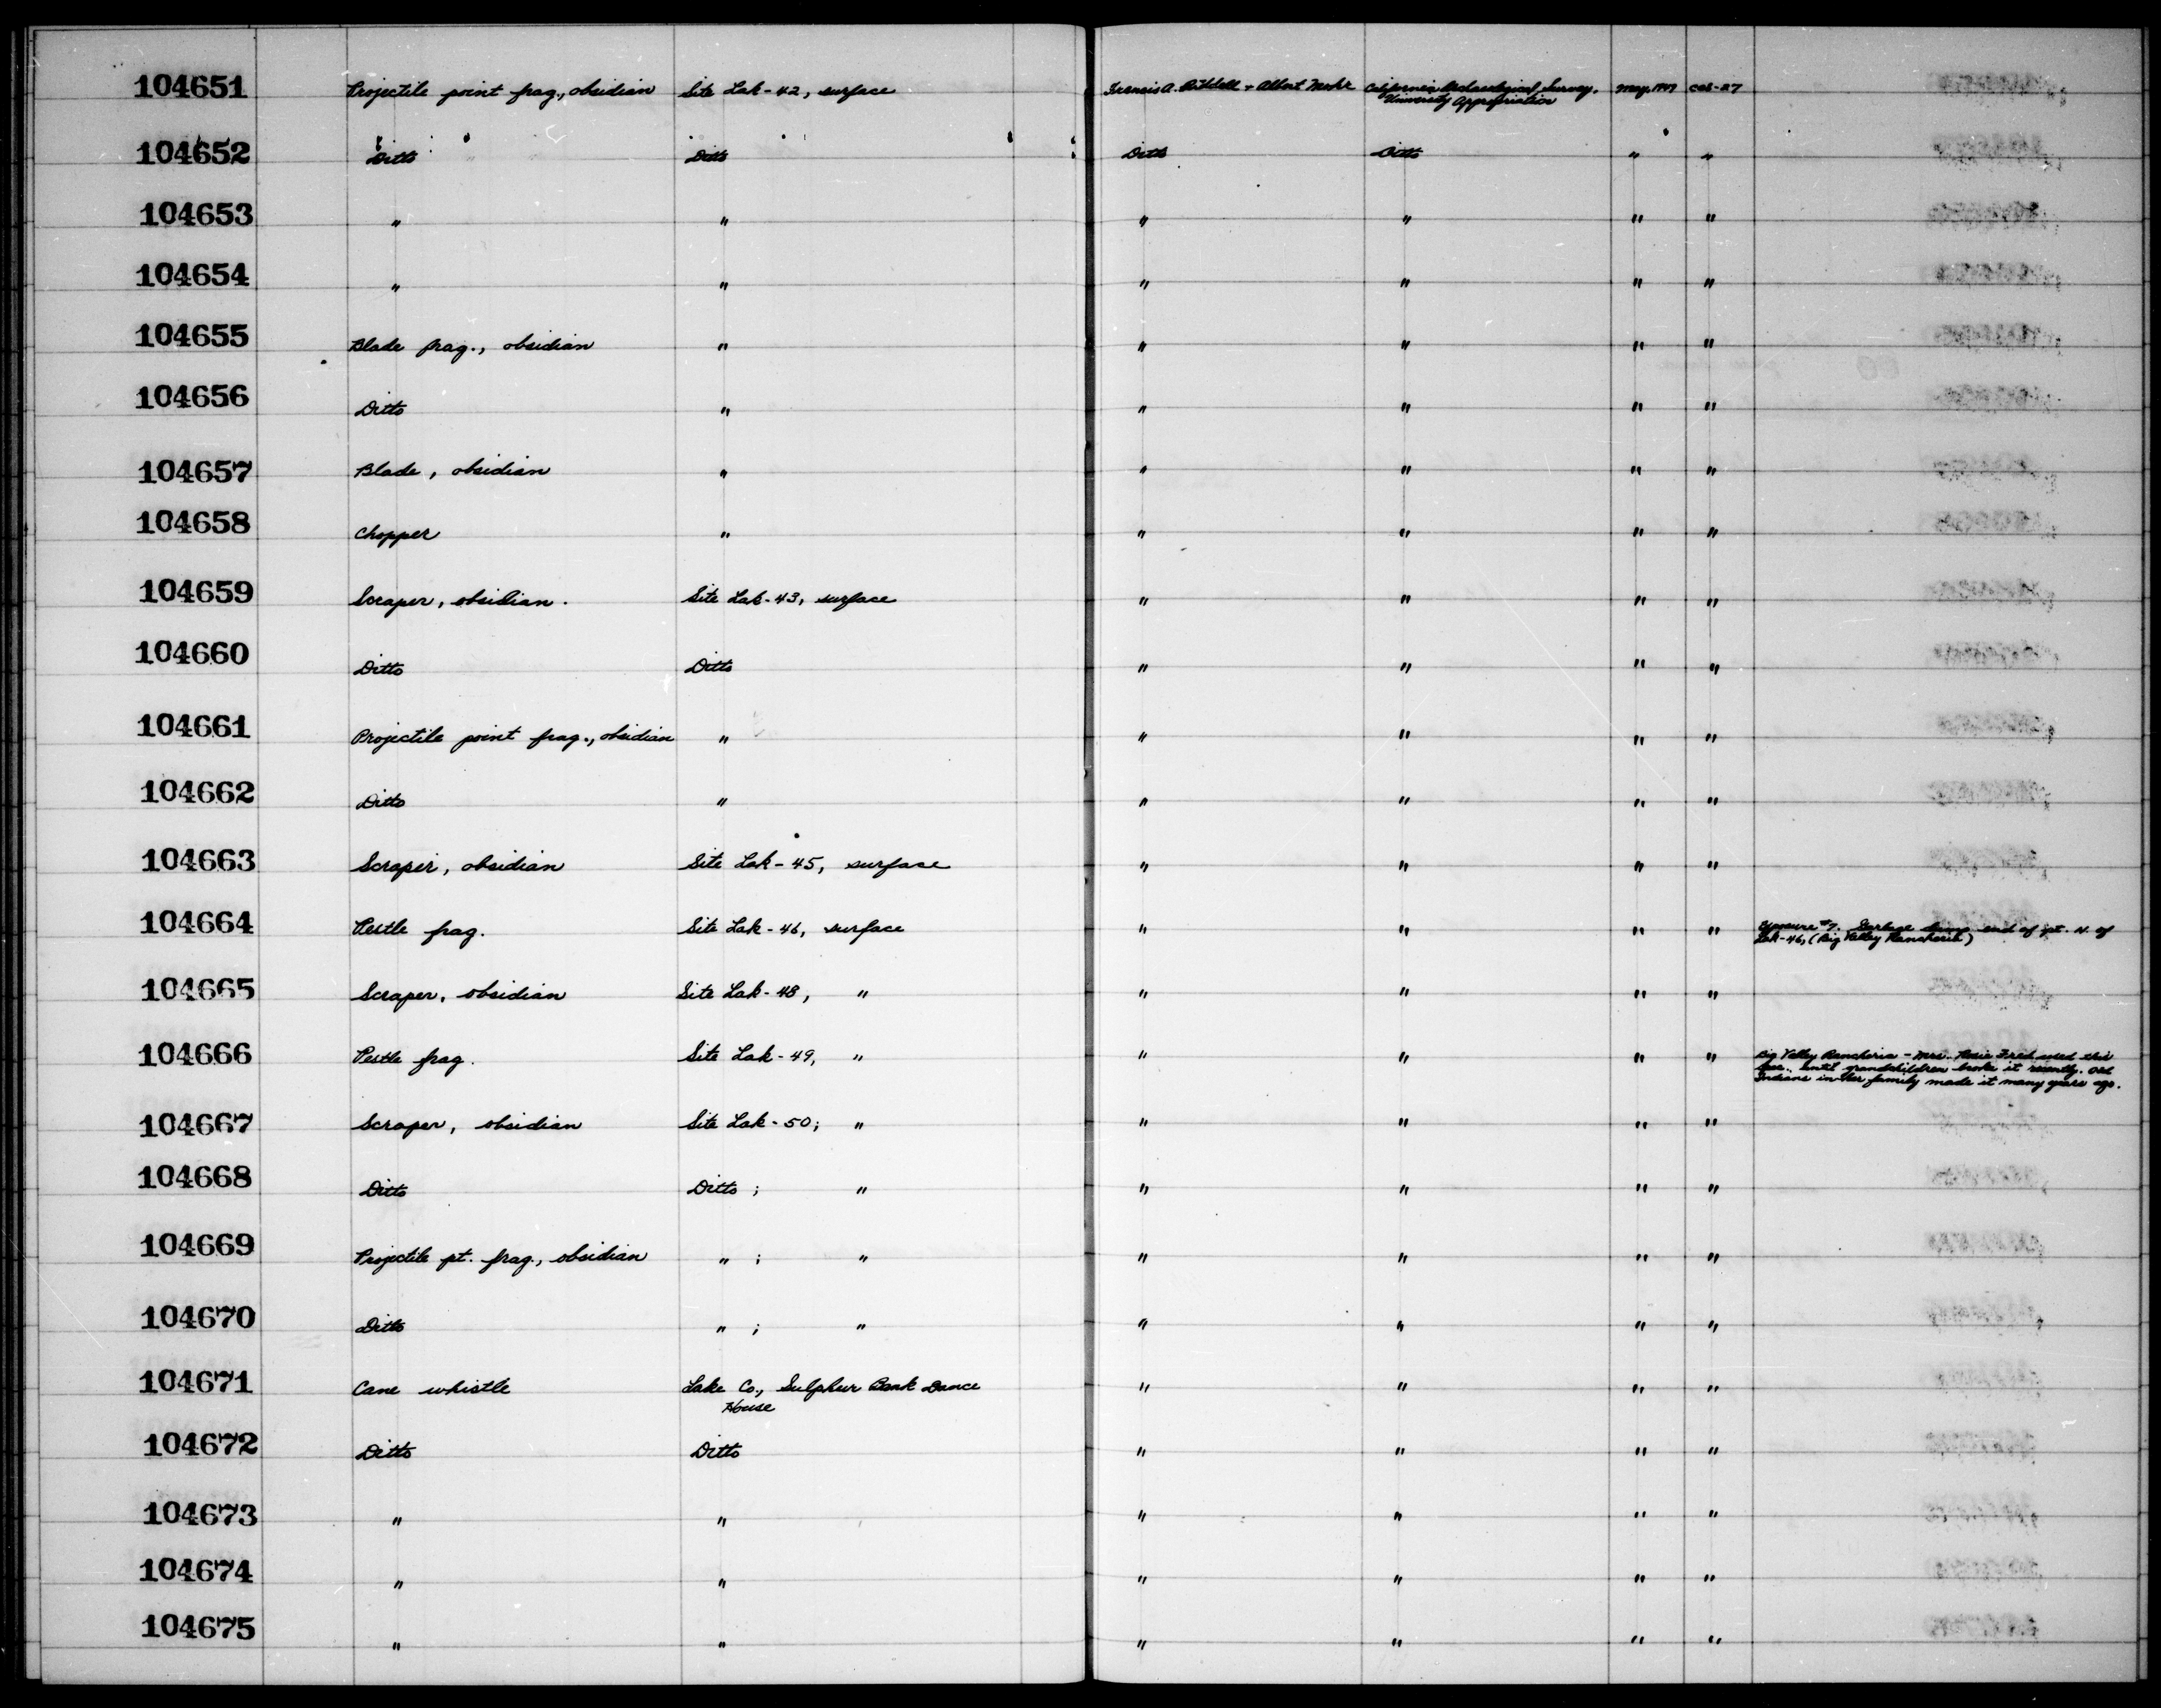 104651 Projectile point frag., obsidian Site Lak-42, surface Francis A. Riddell + Albert Mohr California Archaeological Survey, May, 1947 CAS-27
University Appropriation
104652 Ditto Ditto Ditto Ditto " "
104653 " " " " " "
104654 " " " " " "
104655 Blade frag., obsidian " " " " "
104656 Ditto " " " " "
104657 Blade, obsidian " " " " "
104658 Chopper " " " " "
104659 Scraper, obsidian. Site Lak-43, surface " " " "
104660 Ditto Ditto " " " "
104661 Projectile point frag., obsidian " " " " "
104662 Ditto " " " " "
104663 Scraper, obsidian Site Lak-45, surface " " " "
104664 Pestle frag. Site Lak-46, surface " " " " Exposure #7. Garbage dump end of pt. N. of
Lak-46, (Big Valley Rancheria)
104665 Scraper, obsidian Site Lak-48, " " " " "
104666 Pestle frag. Site Lak-49, " " " " " Big Valley Rancheria - Mrs. Rosie Fred used this
until grandchildren broke it recently. Old
Indians in her family made it many years ago.
104667 Scraper, obsidian Site Lak-50; " " " " "
104668 Ditto Ditto ; " " " " "
104669 Projectile pt. frag., obsidian " ; " " " " "
104670 Ditto " ; " " " " "
104671 Cane whistle Lake Co., Sulphur Bank Dance " " " "
House
104672 Ditto Ditto " " " "
104673 " " " " " "
104674 " " " " " "
104675 " " " " " "